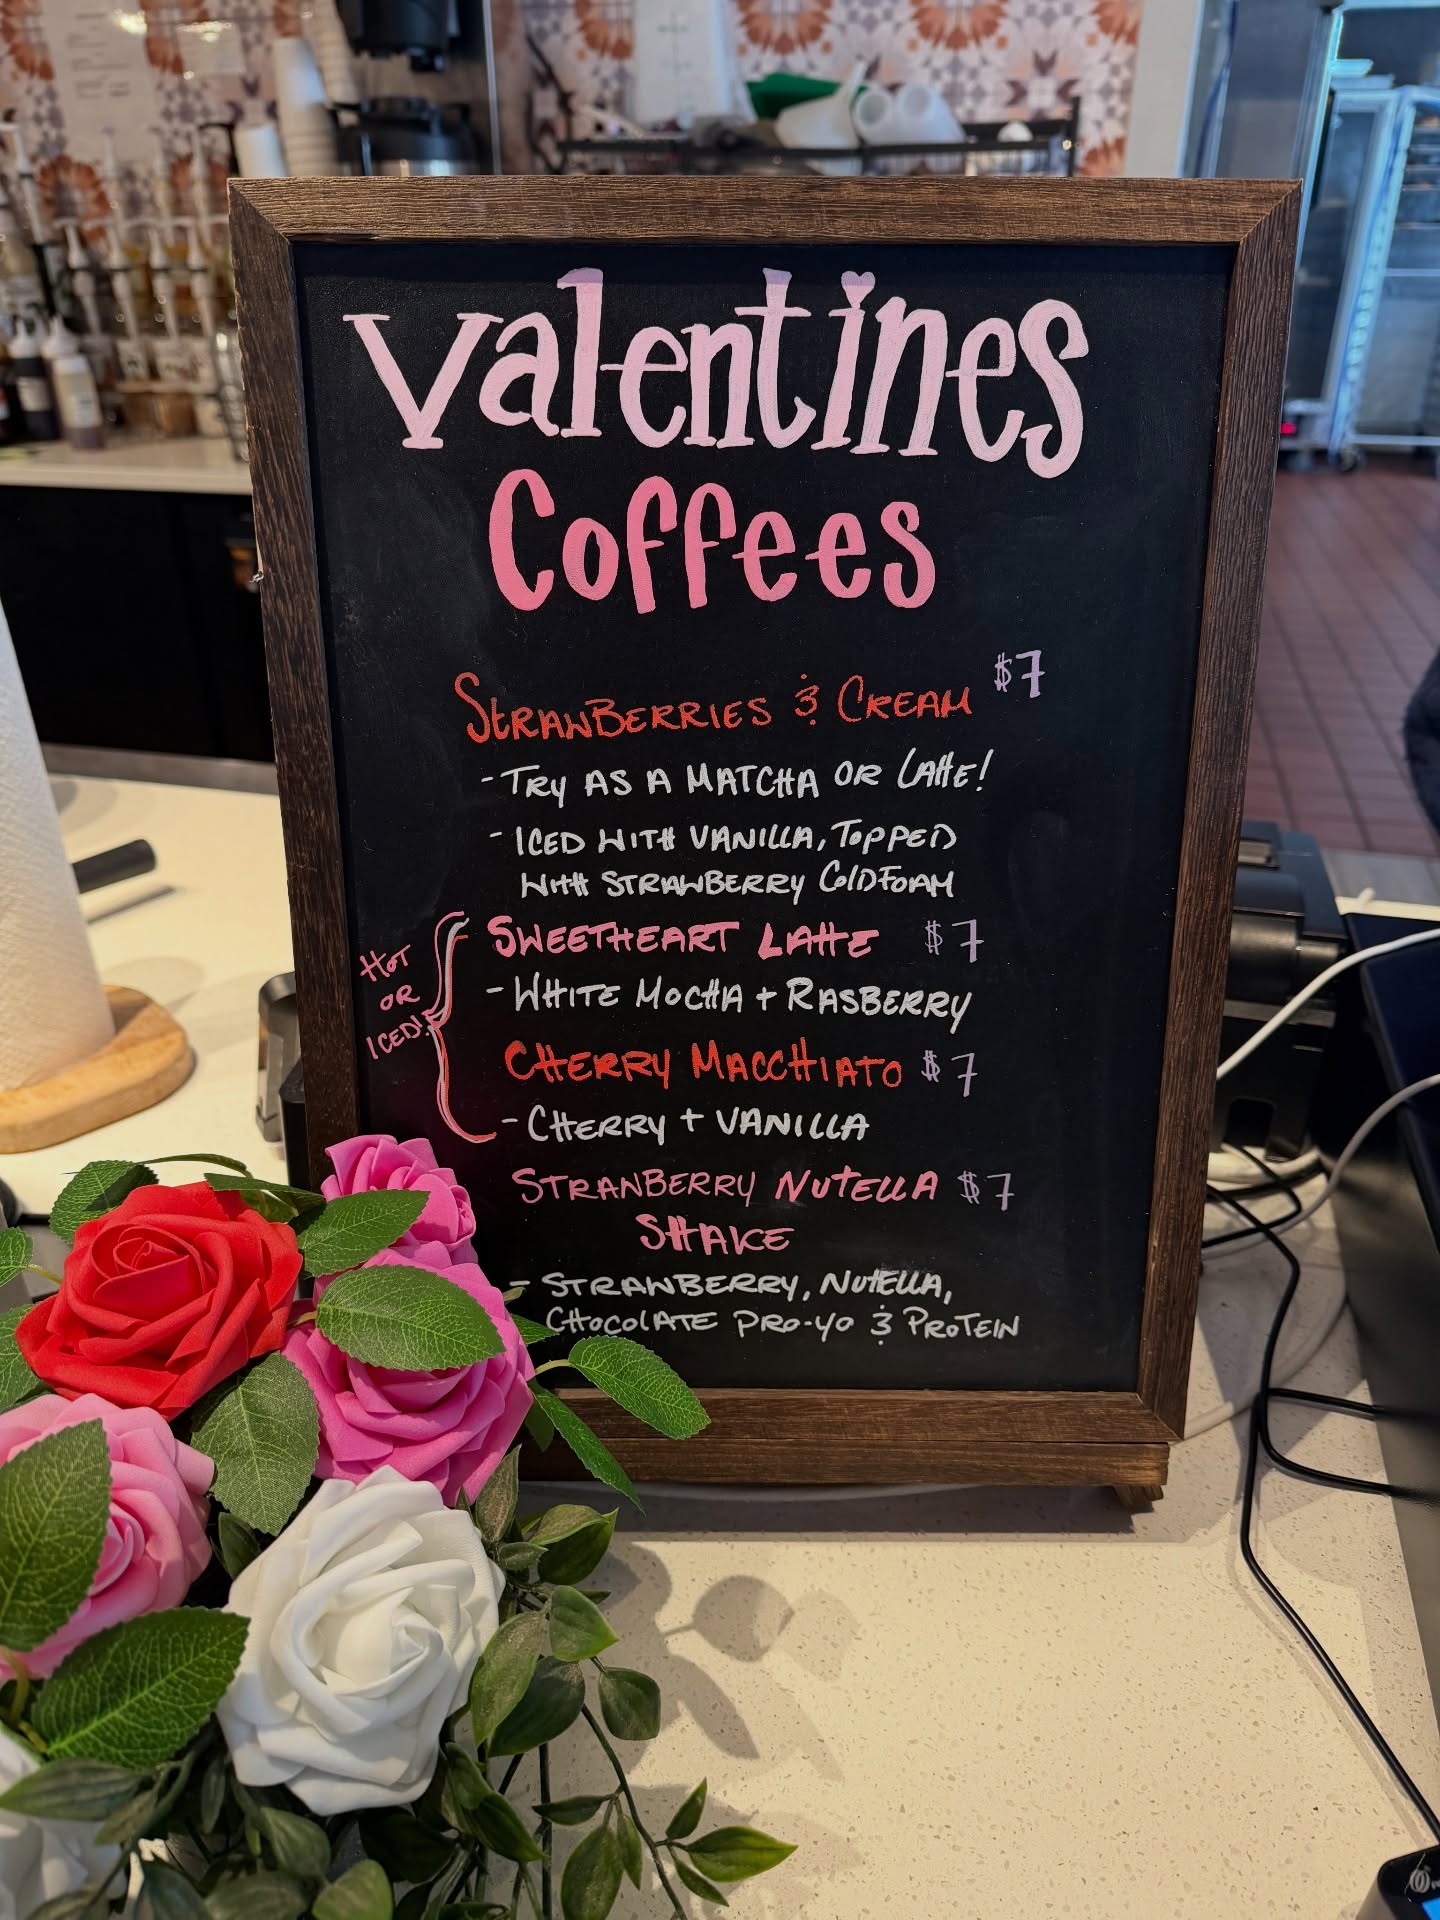 Valentines
Coffees
Strawberries & Cream $7
- Try as a Matcha or Latte!
- Iced with vanilla, topped
with strawberry cold foam
Hot
or
Iced!
Sweetheart Latte $7
- White Mocha + Rasberry
Cherry Macchiato $7
- Cherry + vanilla
Strawberry Nutella $7
Shake
- Strawberry, Nutella,
Chocolate pro-yo & protein